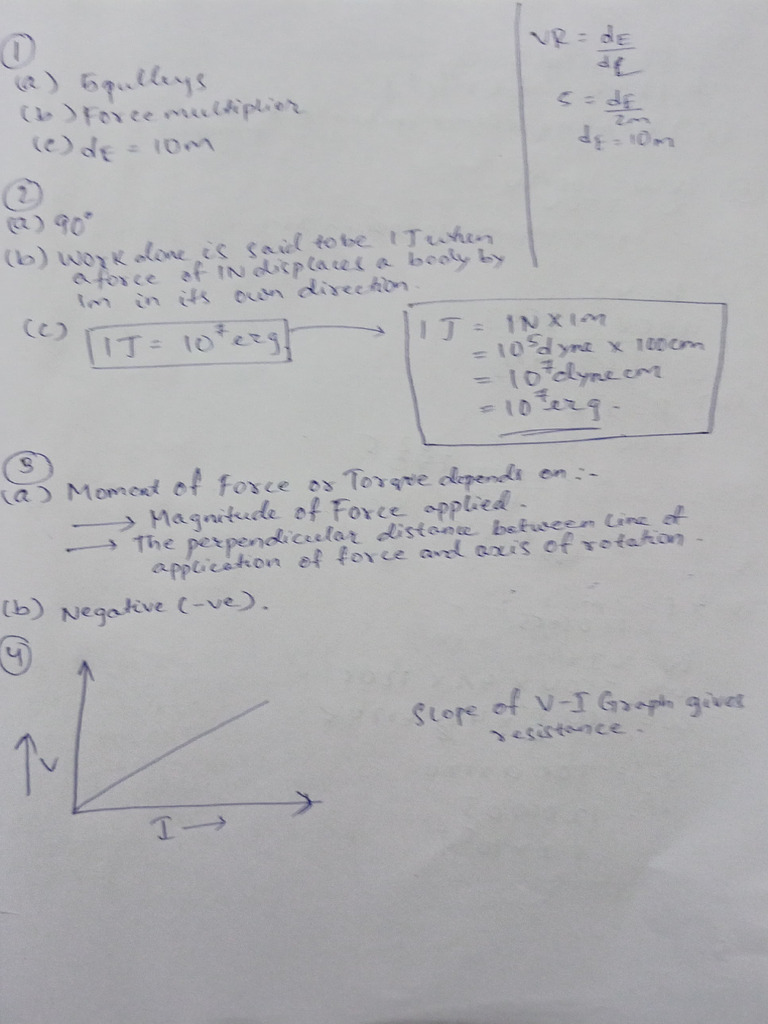 ①
(a) 5 pulleys
(b) Force multiplier
(c) dE = 10m
VR = dE/dL
5 = dE/2m
dE = 10m
②
(a) 90°
(b) Work done is said to be 1 J when
a force of 1N displaces a body by
1m in its own direction.
(c) 1 J = 10⁷ erg
1 J = 1N X 1m
= 10⁵ dyne x 100cm
= 10⁷ dyne cm
= 10⁷ erg.
③
(a) Moment of Force or Torque depends on :-
→ Magnitude of Force applied.
→ The perpendicular distance between line of
application of force and axis of rotation.
(b) Negative (-ve).
④
↑ V
I →
Slope of V-I Graph gives
resistance.